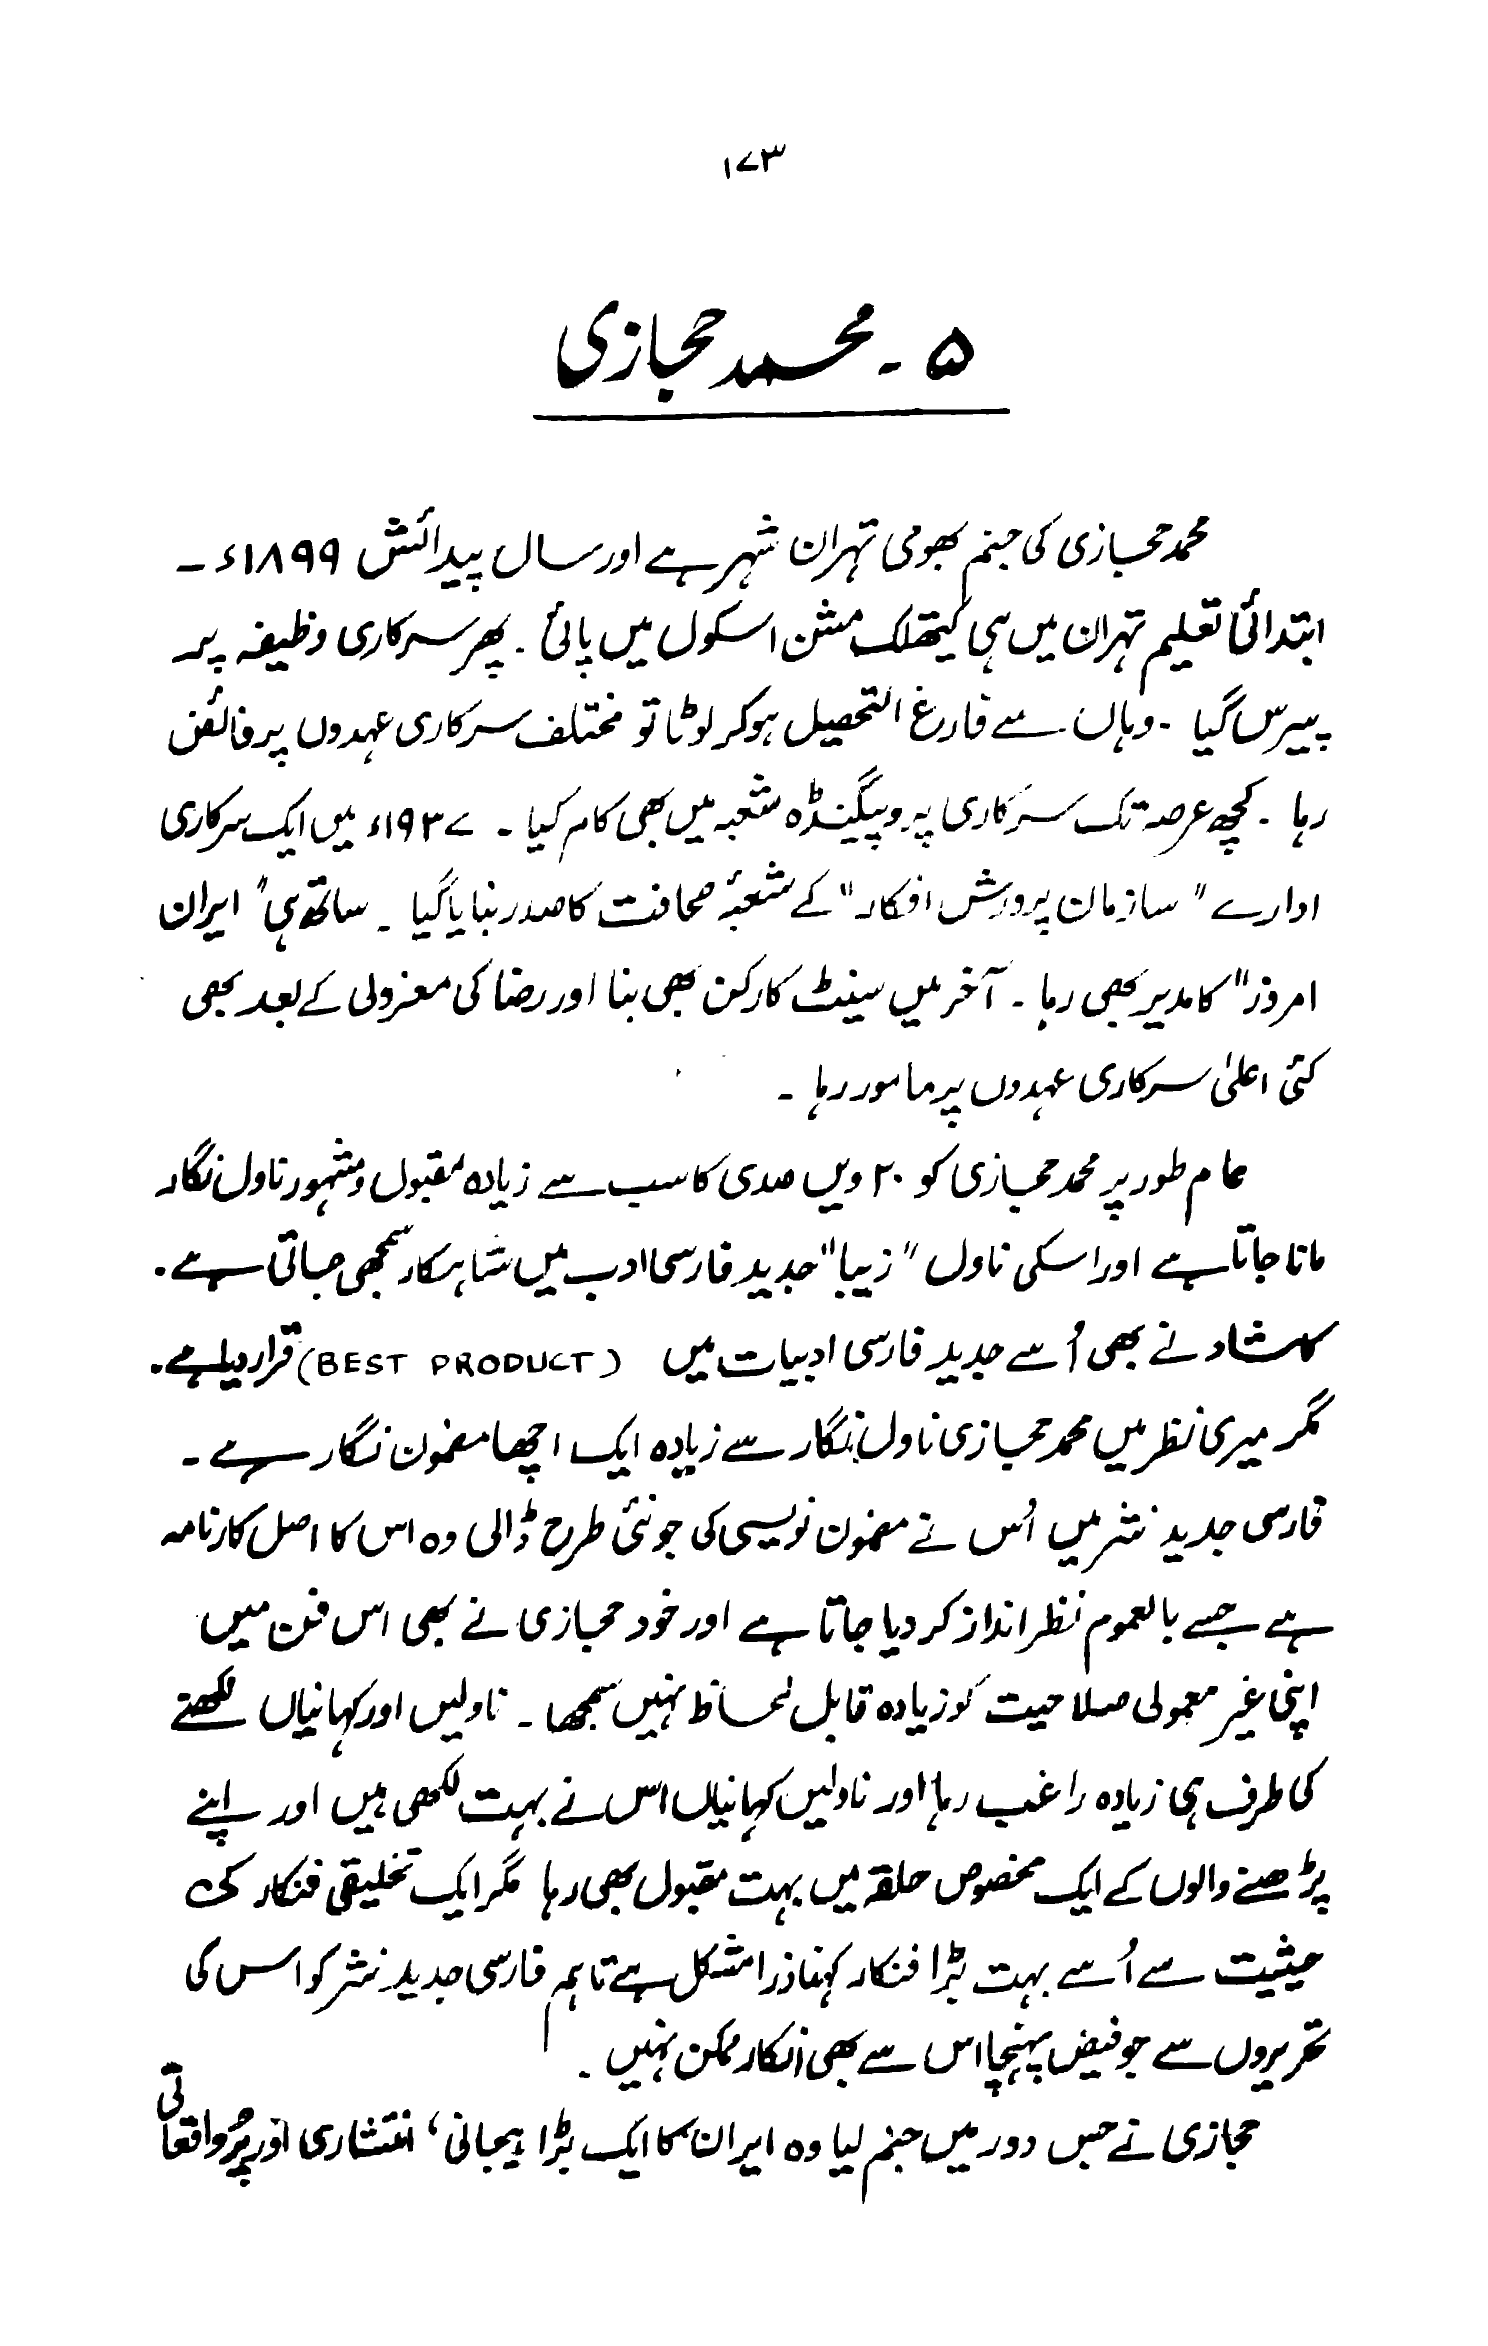 ۱۷۳
۵ ۔ محمد حجازی
محمد حجازی کی جنم بھومی تہران شہر ہے اور سال پیدائش ۱۸۹۹ء ۔
ابتدائی تعلیم تہران میں ہی کیتھلک مشن اسکول میں پائی ۔ پھر سرکاری وظیفہ پر
پیرس گیا ۔ وہاں سے فارغ التحصیل ہوکر لوٹا تو مختلف سرکاری عہدوں پر فائض
رہا ۔ کچھ عرصہ تک سرکاری پروپیگینڈہ شعبہ میں بھی کام کیا ۔ ۱۹۳۷ء میں ایک سرکاری
ادارے "سازمان پرورش افکار" کے شعبۂ صحافت کا صدر بنایا گیا ۔ ساتھ ہی "ایران
امروز" کا مدیر بھی رہا ۔ آخر میں سینٹ کا رکن بھی بنا اور رضا کی معزولی کے بعد بھی
کئی اعلیٰ سرکاری عہدوں پر مامور رہا ۔
عام طور پر محمد حجازی کو ۲۰ ویں صدی کا سب سے زیادہ مقبول و مشہور ناول نگار
مانا جاتا ہے اور اسکی ناول "زیبا" جدید فارسی ادب میں شاہکار سمجھی جاتی ہے ۔
کامشاد نے بھی اُسے جدید فارسی ادبیات میں (BEST PRODUCT) قرار دیا ہے ۔
مگر میری نظر میں محمد حجازی ناول نگار سے زیادہ ایک اچھا مضمون نگار ہے ۔
فارسی جدید نثر میں اُس نے مضمون نویسی کی جو نئی طرح ڈالی وہ اس کا اصل کارنامہ
ہے جسے بالعموم نظر انداز کر دیا جاتا ہے اور خود حجازی نے بھی اس فن میں
اپنی غیر معمولی صلاحیت کو زیادہ قابل لحاظ نہیں سمجھا ۔ ناولیں اور کہانیاں لکھنے
کی طرف ہی زیادہ راغب رہا اور ناولیں کہانیاں اس نے بہت لکھی ہیں اور اپنے
پڑھنے والوں کے ایک مخصوص حلقہ میں بہت مقبول بھی رہا مگر ایک تخلیقی فنکار کی
حیثیت سے اُسے بہت بڑا فنکار کہنا ذرا مشکل ہے تاہم فارسی جدید نثر کو اس کی
تحریروں سے جو فیض پہنچا اس سے بھی انکار ممکن نہیں ۔
حجازی نے جس دور میں جنم لیا وہ ایران کا ایک بڑا ہیجانی، انتشاری اور پُر واقعاتی